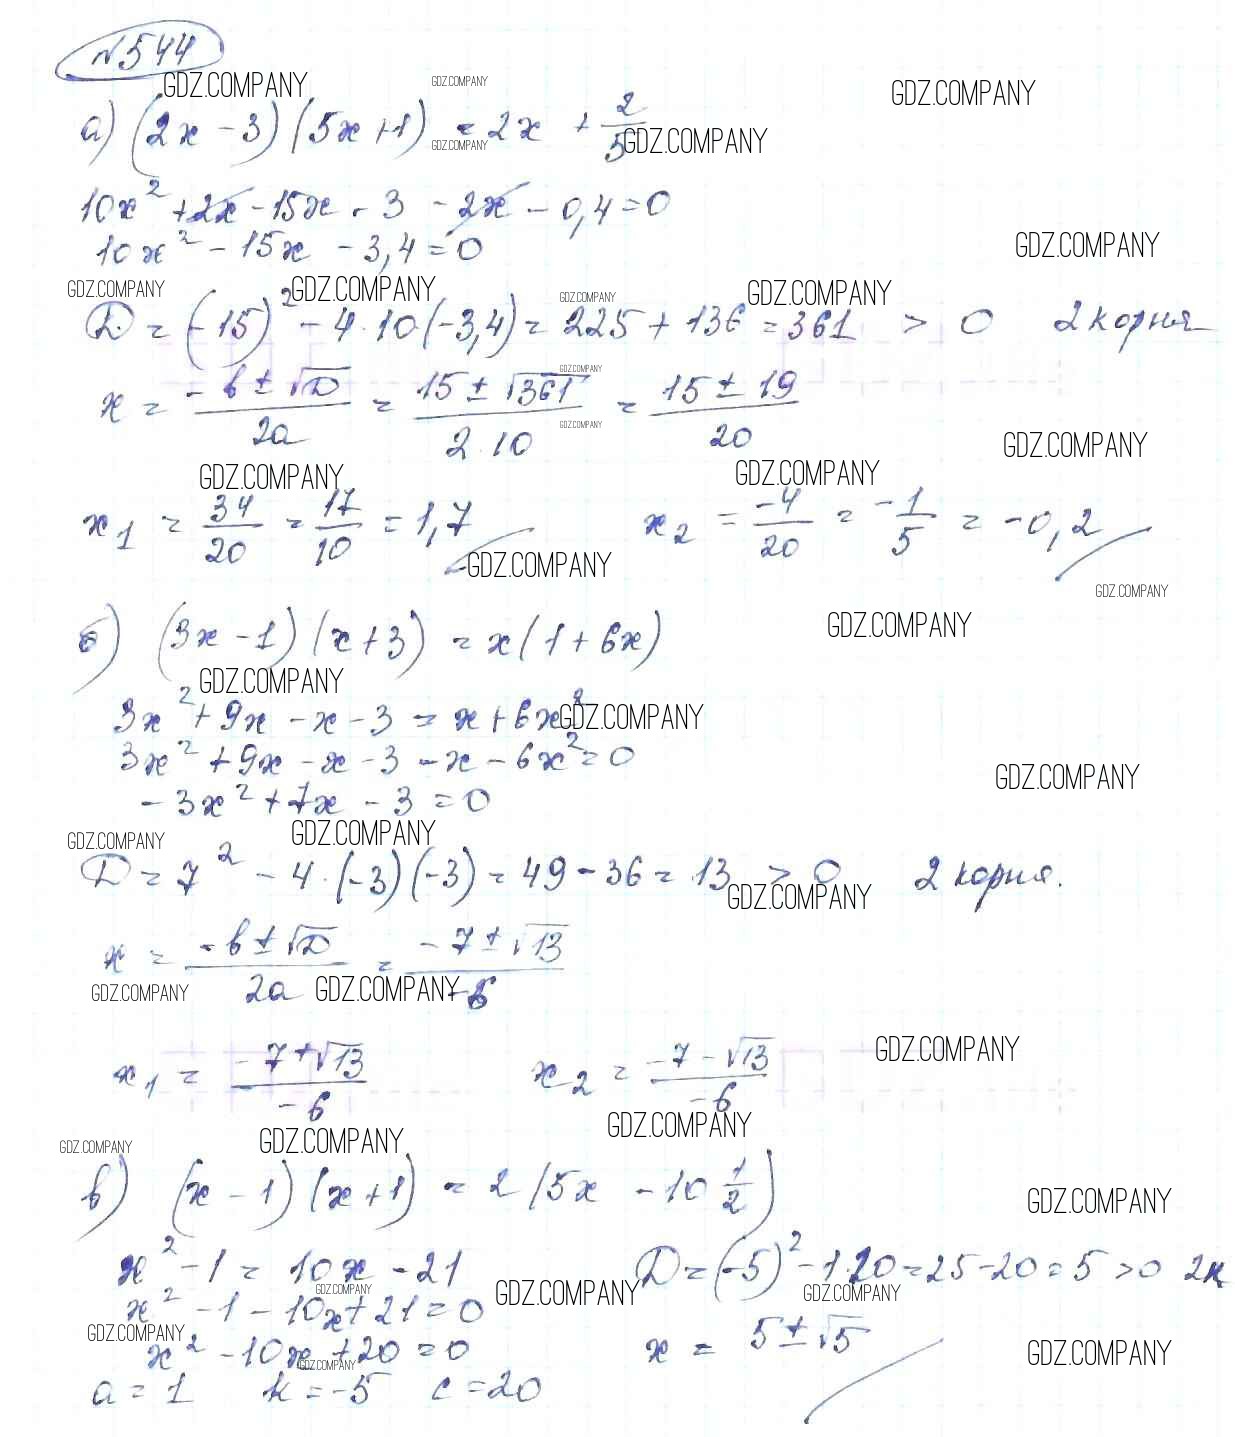 №544
GDZ.COMPANY GDZ.COMPANY GDZ.COMPANY
а) (2x - 3)(5x + 1) = 2x + 2/5
GDZ.COMPANY GDZ.COMPANY
10x² + 2x - 15x - 3 - 2x - 0,4 = 0
10x² - 15x - 3,4 = 0
GDZ.COMPANY
GDZ.COMPANY GDZ.COMPANY GDZ.COMPANY GDZ.COMPANY
D = (-15)² - 4·10·(-3,4) = 225 + 136 = 361 > 0 2 корня
GDZ.COMPANY
x = (-b ± √D)/2a = (15 ± √361)/(2·10) = (15 ± 19)/20
GDZ.COMPANY GDZ.COMPANY
GDZ.COMPANY GDZ.COMPANY
x₁ = 34/20 = 17/10 = 1,7 x₂ = -4/20 = -1/5 = -0,2
GDZ.COMPANY GDZ.COMPANY
б) (3x - 1)(x + 3) = x(1 + 6x)
GDZ.COMPANY
GDZ.COMPANY
3x² + 9x - x - 3 = x + 6x²
GDZ.COMPANY
3x² + 9x - x - 3 - x - 6x² = 0
GDZ.COMPANY
- 3x² + 7x - 3 = 0
GDZ.COMPANY GDZ.COMPANY
D = 7² - 4·(-3)(-3) = 49 - 36 = 13 > 0 2 корня.
GDZ.COMPANY
x = (-b ± √D)/2a = (-7 ± √13)/-6
GDZ.COMPANY GDZ.COMPANY
GDZ.COMPANY
x₁ = (-7 + √13)/-6 x₂ = (-7 - √13)/-6
GDZ.COMPANY GDZ.COMPANY GDZ.COMPANY
в) (x - 1)(x + 1) = 2(5x - 10 1/2)
GDZ.COMPANY
x² - 1 = 10x - 21 D = (-5)² - 1·20 = 25 - 20 = 5 > 0 2к
GDZ.COMPANY GDZ.COMPANY GDZ.COMPANY
x² - 1 - 10x + 21 = 0
GDZ.COMPANY
x² - 10x + 20 = 0 x = 5 ± √5
GDZ.COMPANY GDZ.COMPANY
a = 1 k = -5 c = 20